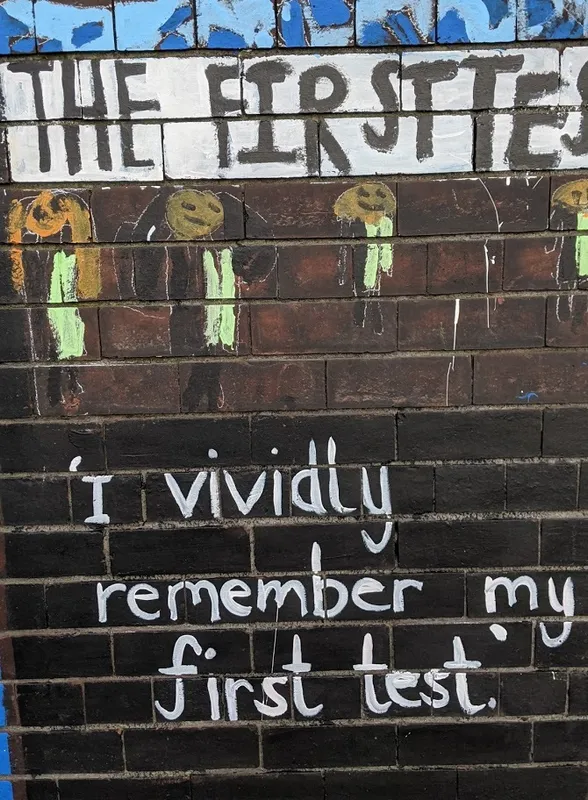 THE FIRST TES
'I vividly
remember my
first test.'